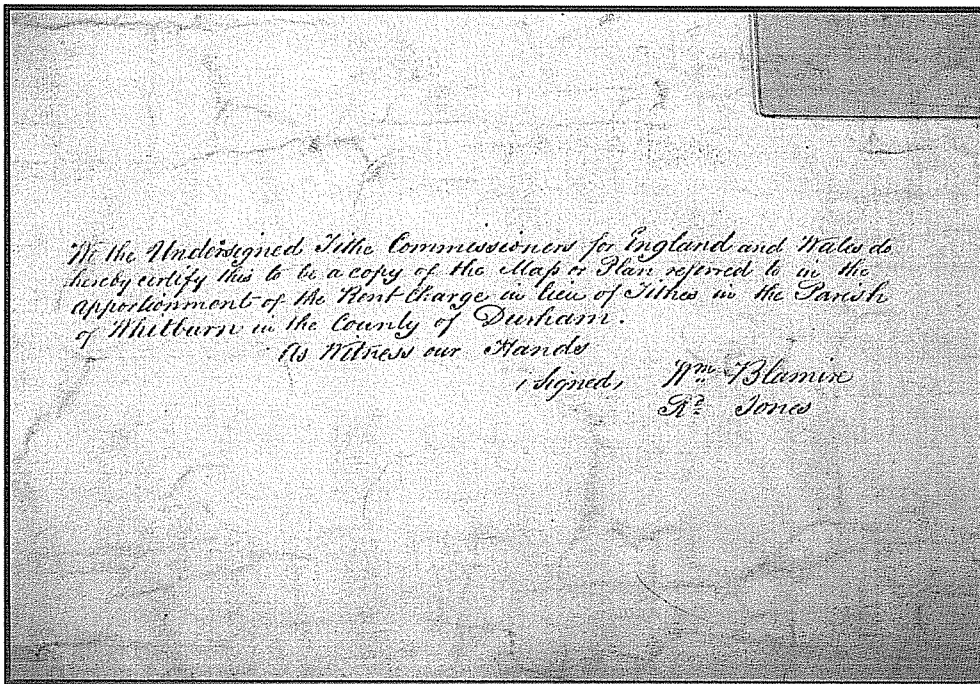 We the Undersigned Tithe Commissioners for England and Wales do
hereby certify this to be a copy of the Map or Plan referred to in the
apportionment of the Rent Charge in lieu of Tithes in the Parish
of Whitburn in the County of Durham.
As Witness our Hands
(Signed) Wm Blamire
Rd Jones